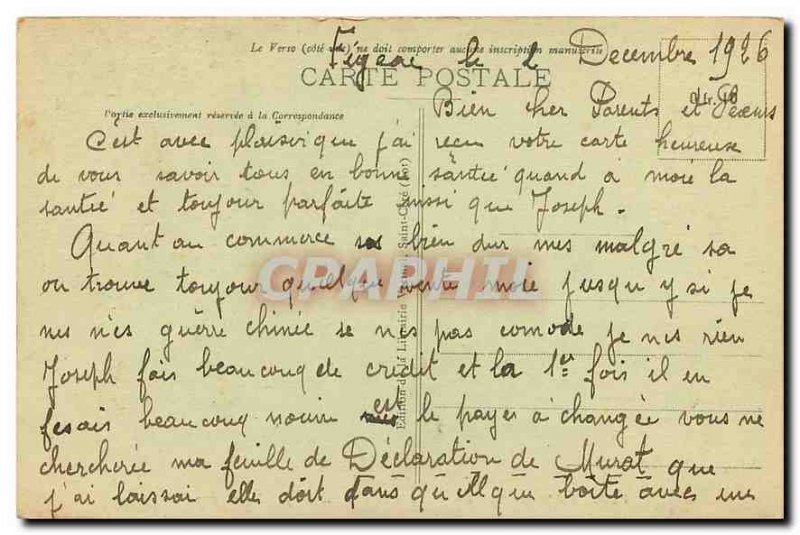 Le Verso (côté vue) ne doit comporter aucune inscription manuscrite
Figeac le 2 Decembre 1926
CARTE POSTALE
Partie exclusivement réservée à la Correspondance
Bien cher Parents et
C'est avec plaisir que j'ai reçu votre carte heureuse
de vous savoir tous en bonne santié quand à moié la
santié et toujour parfaite aussi que Joseph.
Quant au commerce bien dur mes malgré sa
on trouve toujour quelque vente moié jusqu y si je
nes n'es guérre chinée se n'es pas comode je nes rien
Joseph fais beaucoup de credit et la 1er fois il en
fesais beaucoup moine est le payer à changée vous me
chercherée ma feuille de Déclaration de Murat que
j'ai laissai elle doit dans quellque boîte avec une
Edition de la Librairie Saint-Céré (Lot)
CPAPHIL